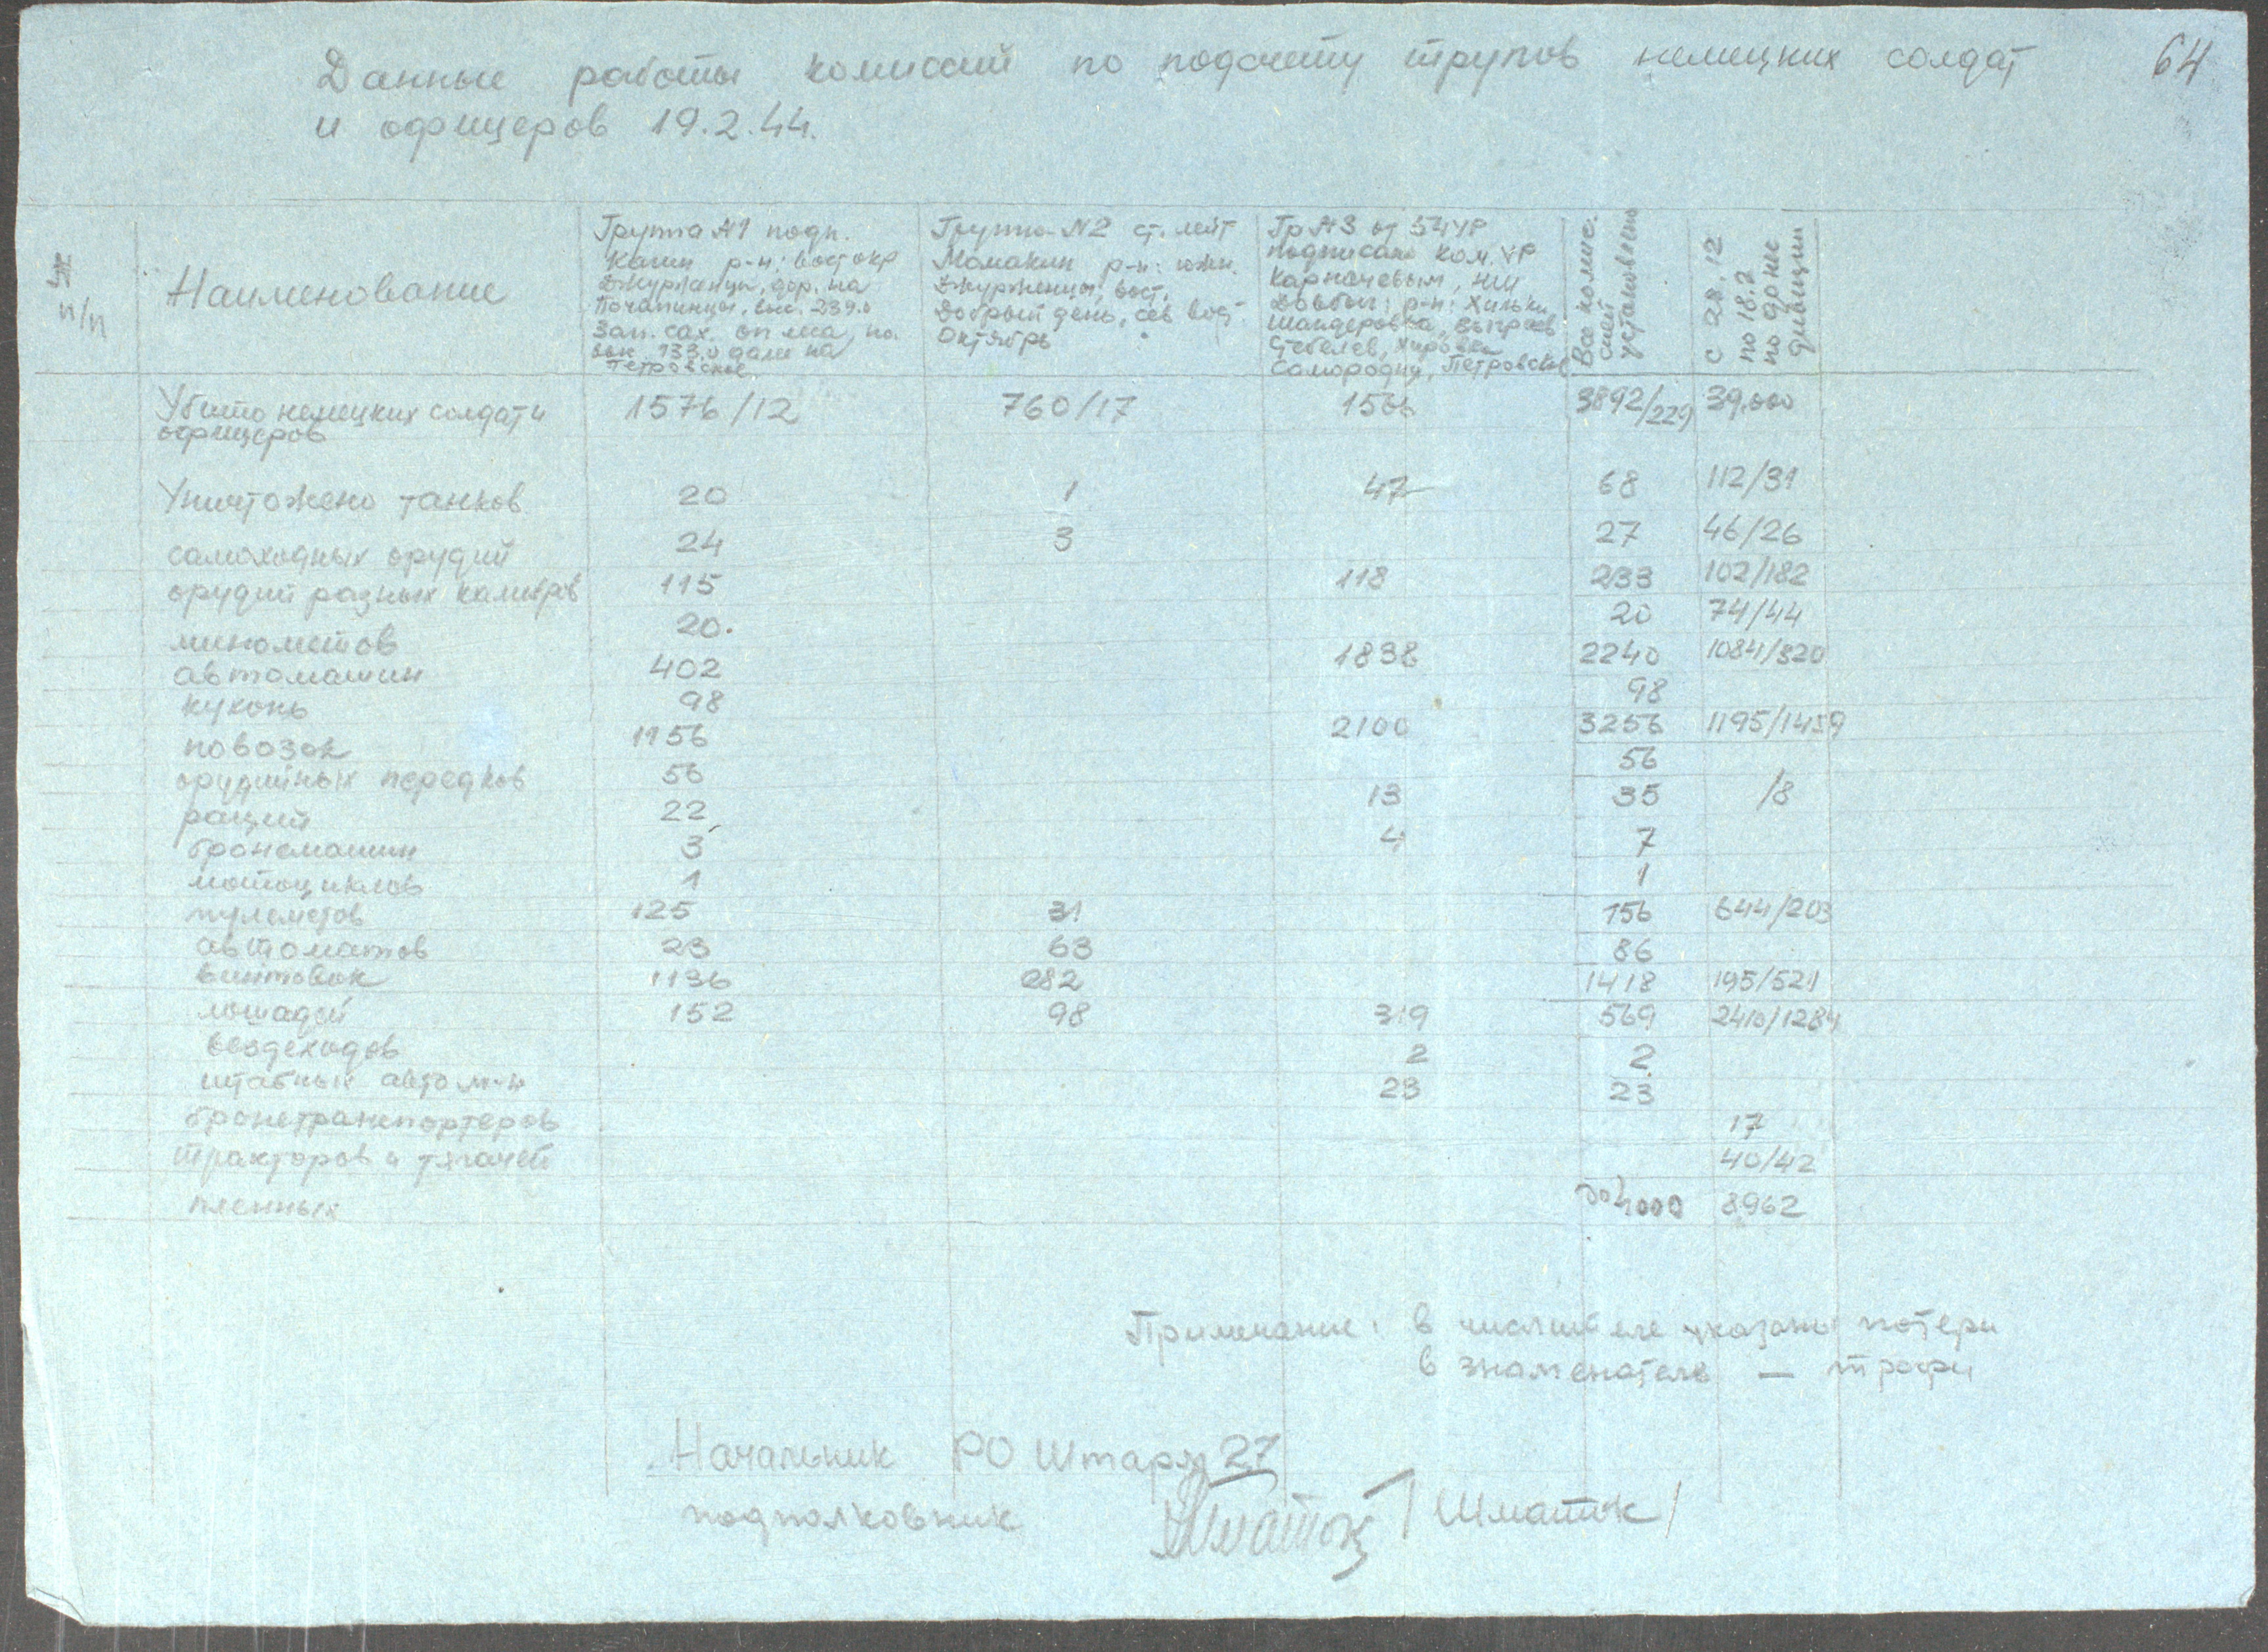 64
Данные работы комиссий по подсчету трупов немецких солдат
и офицеров 19.2.44.
№ п/п
Наименование
Группа №1 подп.
Кагин р-н: вост окр
Джурженцы, дор. на
Почапинцы, выс. 239.0
Зап. сах. оп леса, по.
выс. 133.0 далее на
Петровское.
Группа №2 ст. лейт
Момакин р-н: южн.
Джурженцы, вост.
Добрый день, сев вост
Октябрь
Гр №3 от 54 УР
подписано ком. УР
Карпачевым, НШ
р-н: Хильки,
Шандеровка,
Стеблев, Хировка
Самородня, Петровское
Все комис.
сией
установлено
с 28.12
по 18.2
по донес
дивизии
Убито немецких солдат и
офицеров 1576/12 760/17 3892/229 39.000
Уничтожено танков 20 1 47 68 112/31
самоходных орудий 24 3 27 46/26
орудий разных калибров 115 118 233 102/182
минометов 20. 20 74/44
автомашин 402 1838 2240 1084/320
кухонь 98 98
повозок 1156 2100 3256 1195/1459
орудийных передков 56 56
раций 22 13 35 /8
бронемашин 3 4 7
мотоциклов 1 1
пулеметов 125 31 156 644/203
автоматов 23 63 86
винтовок 1136 282 1418 195/521
лошадей 152 98 319 569 2410/1284
вездеходов 2 2
штабных автом-н 23 23
бронетранспортеров 17
тракторов и тягачей 40/42
пленных до 1000 8962
Примечание: в числителе указаны потери
в знаменателе — трофеи
Начальник РО Штарм 27
подполковник Шматок /Шматок/